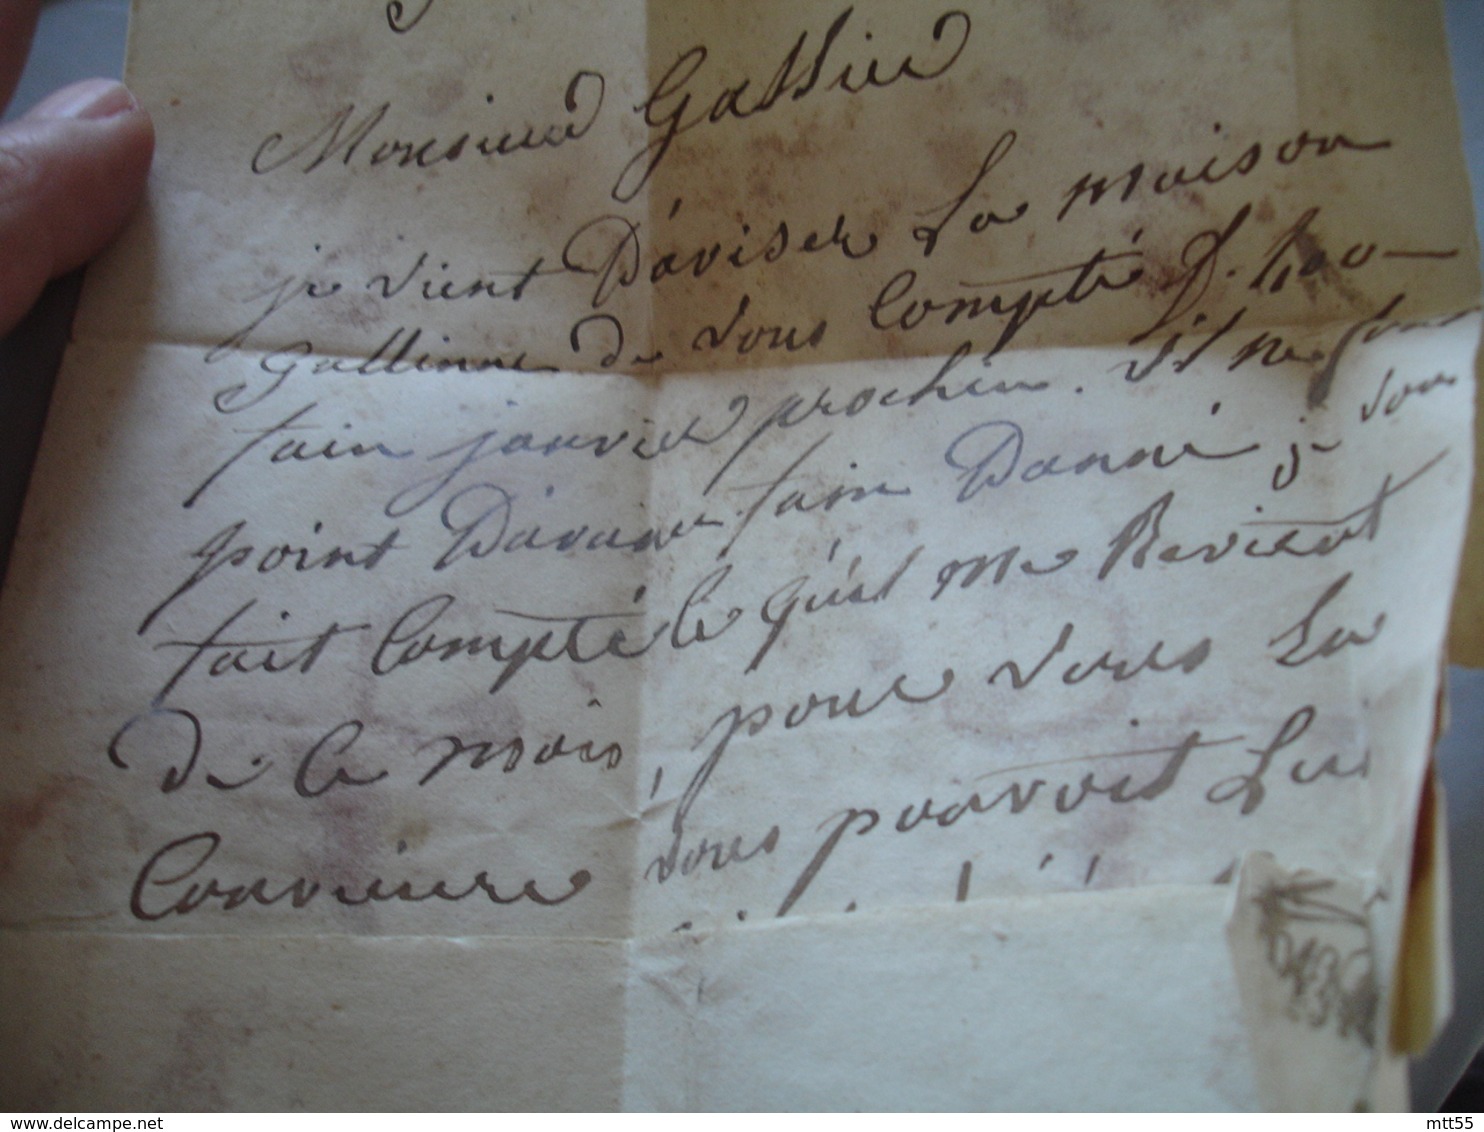 Monsieur Gattier
je vient D'aviser La maison
Gallinne de vous Compté
fain janvier prochin. il ne
point Davoire fain Danné je vous
fait Compté Ce qu'il me Revient
de Ce mois, pour vous La
Convienre vous pouvoit Lui
mtt55